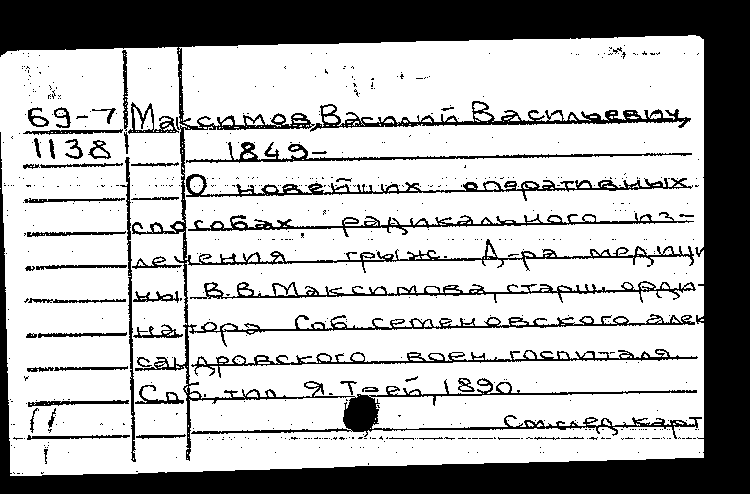 69-7 Максимов, Василий Васильевич,
1138 1849-
О новейших оперативных
способах радикального из-
лечения грыж. Д-ра медици
ны В.В. Максимова, старш. орди-
натора Спб. семеновского алек
сандровского воен. госпиталя.
Спб., тип. Я. Трей, 1890.
См. след. карт